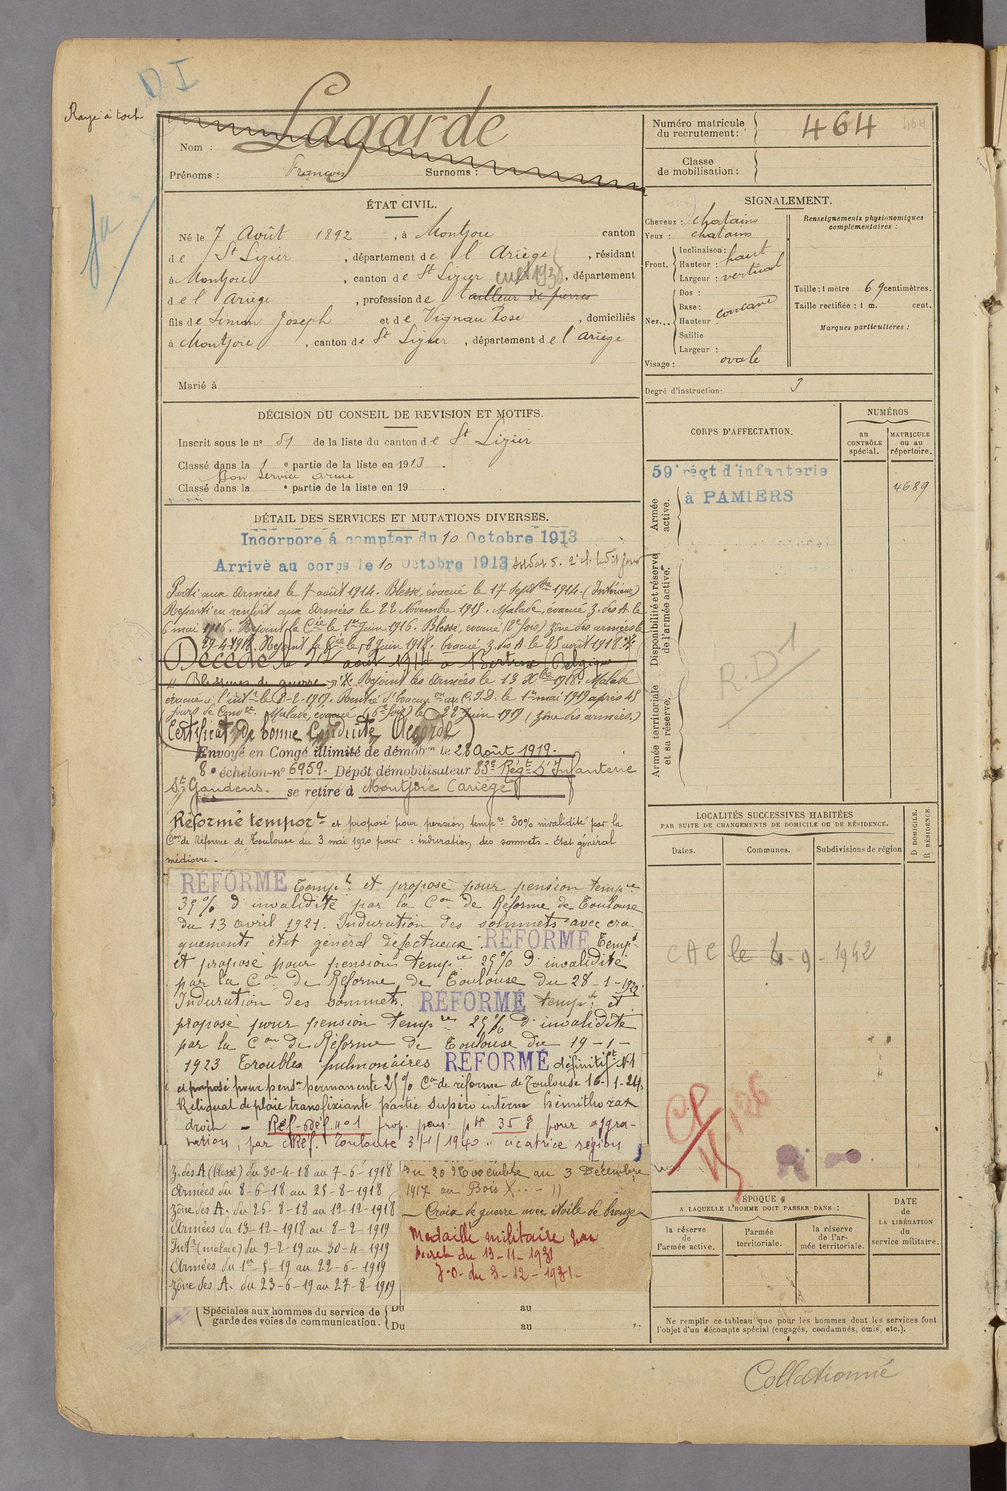 D I
Rayé à tort
Lagarde
Nom :
Prénoms : François Surnoms :
Numéro matricule
du recrutement : 464
Classe
de mobilisation :
ÉTAT CIVIL.
Né le 7 Août 1892, à Montjoie canton
de St Lizier, département de l'Ariège, résidant
à Montjoie, canton de St Lizier, département
de l'Ariège, profession de tailleur de pierres
fils de Simon Joseph et de Vignau Rose, domiciliés
à Montjoie, canton de St Lizier, département de l'Ariège
Marié à
SIGNALEMENT.
Cheveux : chatains
Yeux : chatains
Front. Inclinaison :
Hauteur : haut
Largeur : vertical
Nez... Dos :
Base : concave
Hauteur
Saillie
Largeur :
Visage : ovale
Renseignements physionomiques
complémentaires :
Taille : 1 mètre 69 centimètres.
Taille rectifiée : 1 m. cent.
Marques particulières :
Degré d'instruction : 3
DÉCISION DU CONSEIL DE REVISION ET MOTIFS.
Inscrit sous le n° 51 de la liste du canton de St Lizier
Classé dans la 1e partie de la liste en 1913.
Bon service armé
Classé dans la e partie de la liste en 19
CORPS D'AFFECTATION.
NUMÉROS
au
CONTRÔLE
spécial.
MATRICULE
ou au
répertoire.
Armée
active.
59e régt d'infanterie
à PAMIERS
4689
Disponibilité et réserve
de l'armée active.
Armée territoriale
et sa réserve.
R.D 1
DÉTAIL DES SERVICES ET MUTATIONS DIVERSES.
Incorporé á compter du 10 Octobre 1913
Arrivé au corps le 10 Octobre 1913 soldat de 2e cl. ledit jour
Parti aux armées le 7 août 1914. Blessé, évacué le 17 septbre 1914. (Intérieur)
Reparti en renfort aux Armées le 22 Novembre 1915. Malade, évacué z. des A. le
6 mai 1916. Rejoint la Cie le 1er Juin 1916. Blessé, évacué (2e fois) zone des armées le
29-4-1918. Rejoint la Cie le 8 Juin 1918. Evacué z. des A. le 25 août 1918.
Décédé le 22 août 1914 à Bertrix (Belgique)
Blessures de guerre. Rejoint les Armées le 13 Xbre 1918. Malade
évacué à l'intr le 8-2-1919. Rentré d'évacuon au C.I.D. le 1er mai 1919 après 45
jours de Convce Malade, évacué (5e fois) le 22 Juin 1919 (zone des armées.)
Certificat de bonne Conduite Accordé
Envoyé en Congé illimité de démobon le 28 Août 1919.
8e échelon - n° 6959. Dépôt démobilisateur 83e Régt d'Infanterie
St Gaudens. se retire à Montjoie (Ariège)
Réformé temporre et proposé pour pension tempre 30% invalidité par la
Con de réforme de Toulouse du 3 mai 1920 pour : induration des sommets - Etat général
médiocre -
RÉFORMÉ Tempt et proposé pour pension tempre
35% d'invalidité par la Con de Réforme de Toulouse
du 13 avril 1921. Induration des sommets avec cra-
quements état général défectueux. RÉFORMÉ Tempt
et proposé pour pension tempre 25% d'invalidité
par la Con de Réforme de Toulouse du 28-1-1922
Induration des sommets. RÉFORMÉ tempt et
proposé pour pension tempre 25% d'invalidité
par la Con de Réforme de Toulouse du 19-1-
1923 Troubles pulmonaires RÉFORMÉ définitift N°1
et proposé pour penson permanente 25% Con de réforme de Toulouse 16-1-24.
Reliquat de plaie transfixiante partie supéro interne hémithorax
droit - Réf. déf. n° 1 prop. pens. pte 35% pour aggra-
vation, par C. Réf. Toulouse 3/1/1940 " cicatrice région
z. des A (blessé) du 30-4-18 au 7-6-1918
Armées du 8-6-18 au 25-8-1918
zône des A. du 26-8-18 au 12-12-1918
Armées du 13-12-1918 au 8-2-1919
Intr (malade) du 9-2-19 au 30-4-1919
Armées du 1er-5-19 au 22-6-1919
zône des A. du 23-6-19 au 27-8-1919
Du 20 Novembre au 3 Décembre
1917 au Bois
Croix de guerre avec étoile de bronze
Médaille militaire par
décret du 13-11-1931
J.O. du 3-12-1931
Spéciales aux hommes du service de
garde des voies de communication.
Du au
Du au
LOCALITÉS SUCCESSIVES HABITÉES
PAR SUITE DE CHANGEMENTS DE DOMICILE OU DE RÉSIDENCE.
Dates.
Communes.
Subdivisions de région
D DOMICILE.
R RÉSIDENCE
CAC le 4-9-1942
ÉPOQUE
A LAQUELLE L'HOMME DOIT PASSER DANS :
la réserve
de
l'armée active.
l'armée
territoriale.
la réserve
de l'ar-
mée territoriale.
DATE
de
LA LIBÉRATION
du
service militaire.
Ne remplir ce tableau que pour les hommes dont les services font
l'objet d'un décompte spécial (engagés, condamnés, omis, etc.).
Collationné